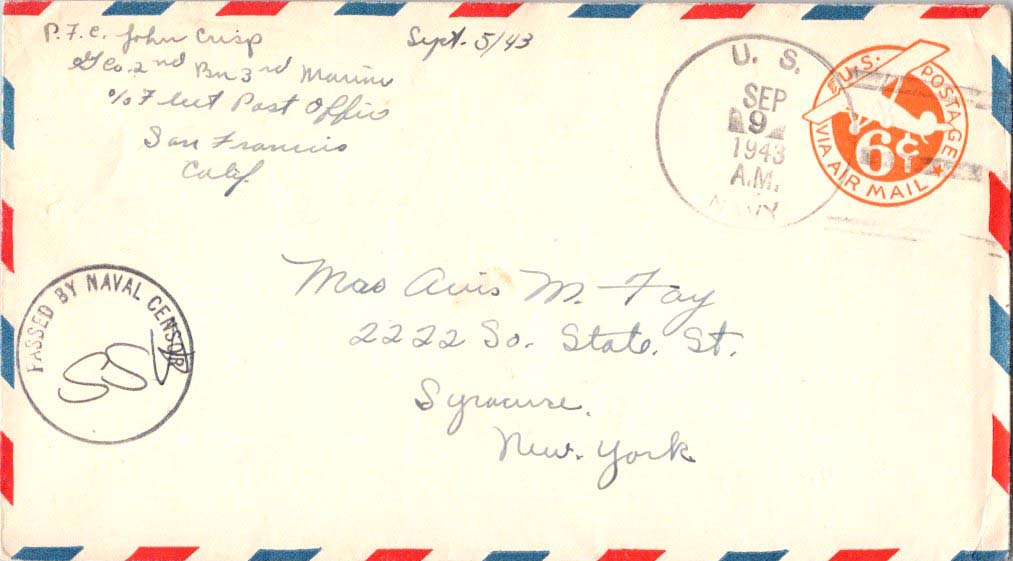 P.F.C. John Crisp
Sept. 5/43
G Co. 2nd Bn 3rd Marine
c/o Fleet Post Office
San Francisco
Calif.
U. S.
SEP
9
1943
A.M.
NAVY
U.S. POSTAGE
6¢
VIA AIR MAIL
PASSED BY NAVAL CENSOR
Avis M. Fay
2222 So. State. St.
Syracuse.
New. York